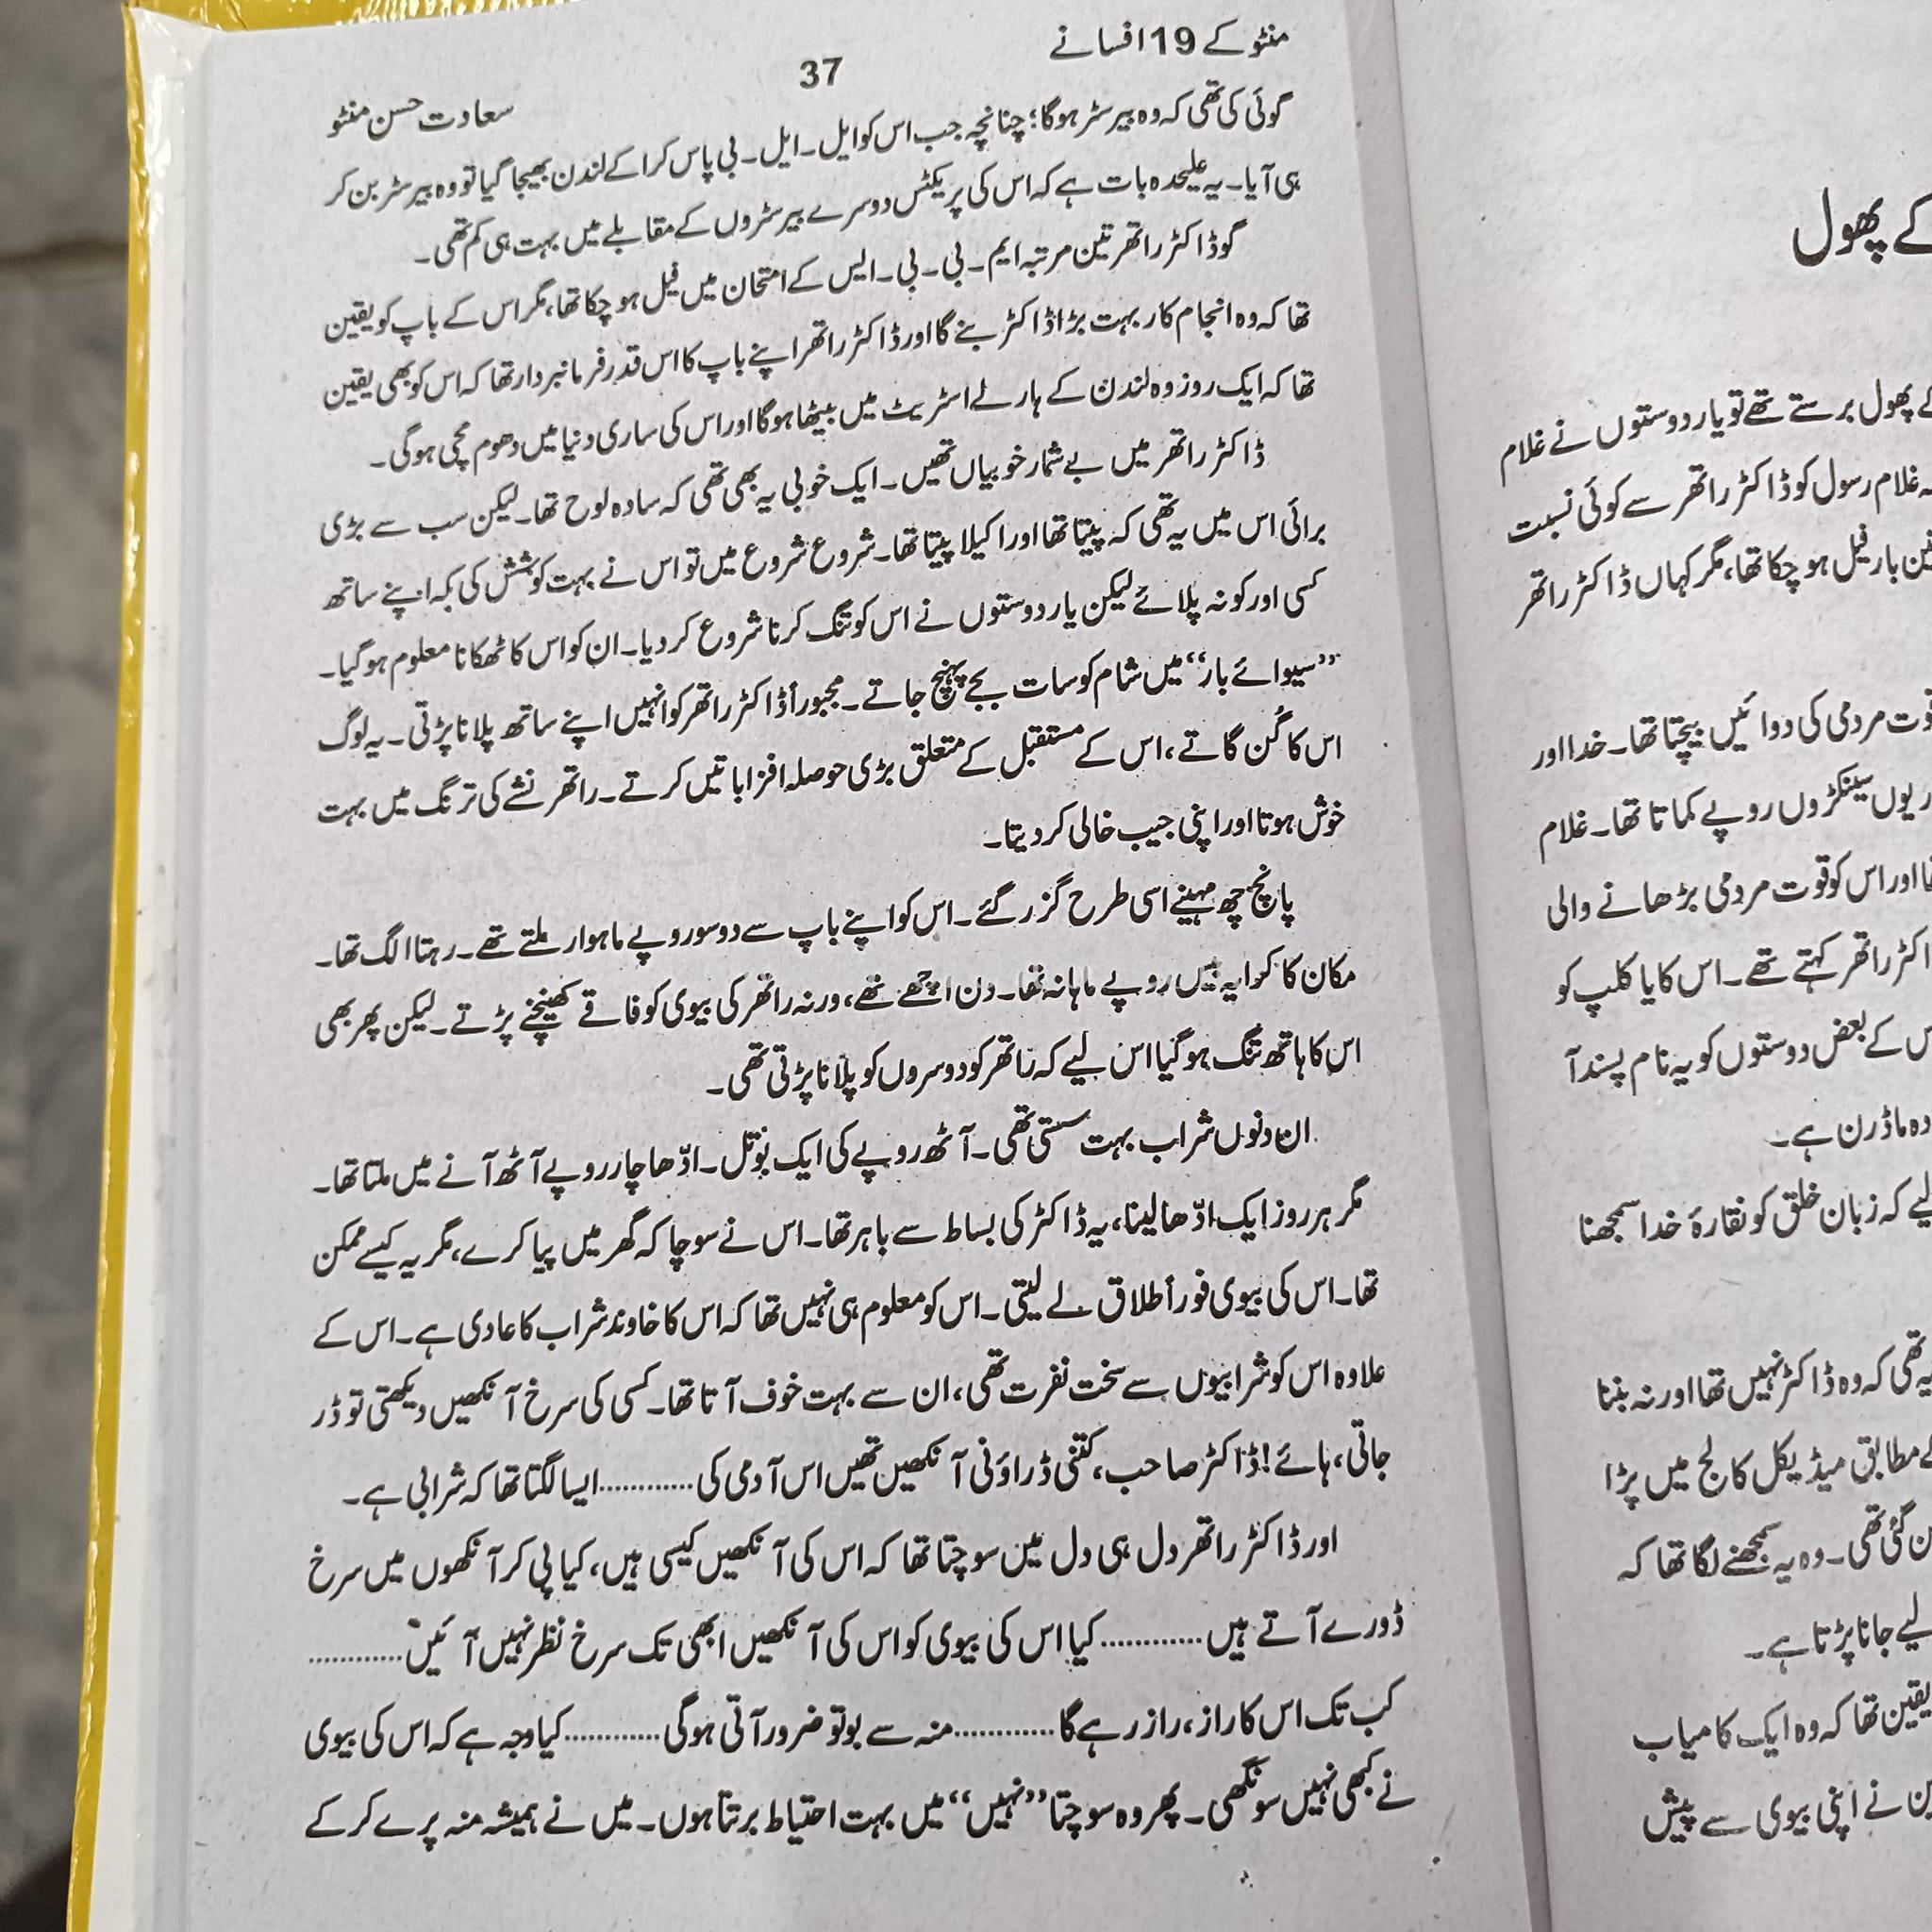 منٹو کے 19 افسانے
37
سعادت حسن منٹو
گوئی کی تھی کہ وہ بیرسٹر ہوگا؛ چنانچہ جب اس کو ایل۔ ایل۔ بی پاس کرا کے لندن بھیجا گیا تو وہ بیرسٹر بن کر
ہی آیا۔ یہ علیحدہ بات ہے کہ اس کی پریکٹس دوسرے بیرسٹروں کے مقابلے میں بہت ہی کم تھی۔
گو ڈاکٹر راتھر تین مرتبہ ایم۔ بی۔ بی۔ ایس کے امتحان میں فیل ہو چکا تھا، مگر اس کے باپ کو یقین
تھا کہ وہ انجام کار بہت بڑا ڈاکٹر بنے گا اور ڈاکٹر راتھر اپنے باپ کا اس قدر فرمانبردار تھا کہ اس کو بھی یقین
تھا کہ ایک روز وہ لندن کے ہارلے اسٹریٹ میں بیٹھا ہوگا اور اس کی ساری دنیا میں دھوم مچی ہوگی۔
ڈاکٹر راتھر میں بے شمار خوبیاں تھیں۔ ایک خوبی یہ بھی تھی کہ سادہ لوح تھا۔ لیکن سب سے بڑی
برائی اس میں یہ تھی کہ پیتا تھا اور اکیلا پیتا تھا۔ شروع شروع میں تو اس نے بہت کوشش کی کہ اپنے ساتھ
کسی اور کو نہ پلائے لیکن یار دوستوں نے اس کو تنگ کرنا شروع کر دیا۔ ان کو اس کا ٹھکانا معلوم ہو گیا۔
”سیوائے بار“ میں شام کو سات بجے پہنچ جاتے۔ مجبوراً ڈاکٹر راتھر کو انہیں اپنے ساتھ پلانا پڑتی۔ یہ لوگ
اس کا گُن گاتے، اس کے مستقبل کے متعلق بڑی حوصلہ افزا باتیں کرتے۔ راتھر نشے کی ترنگ میں بہت
خوش ہوتا اور اپنی جیب خالی کر دیتا۔
پانچ چھ مہینے اسی طرح گزر گئے۔ اس کو اپنے باپ سے دو سو روپے ماہوار ملتے تھے۔ رہتا الگ تھا۔
مکان کا کرایہ بیس روپے ماہانہ تھا۔ دن اچھے تھے، ورنہ راتھر کی بیوی کو فاقے کھینچنے پڑتے۔ لیکن پھر بھی
اس کا ہاتھ تنگ ہو گیا اس لیے کہ راتھر کو دوسروں کو پلانا پڑتی تھی۔
ان دنوں شراب بہت سستی تھی۔ آٹھ روپے کی ایک بوتل۔ ادّھا چار روپے آٹھ آنے میں ملتا تھا۔
مگر ہر روز ایک ادّھا لینا، یہ ڈاکٹر کی بساط سے باہر تھا۔ اس نے سوچا کہ گھر میں پیا کرے، مگر یہ کیسے ممکن
تھا۔ اس کی بیوی فوراً طلاق لے لیتی۔ اس کو معلوم ہی نہیں تھا کہ اس کا خاوند شراب کا عادی ہے۔ اس کے
علاوہ اس کو شرابیوں سے سخت نفرت تھی، ان سے بہت خوف آتا تھا۔ کسی کی سرخ آنکھیں دیکھتی تو ڈر
جاتی، ہائے! ڈاکٹر صاحب، کتنی ڈراؤنی آنکھیں تھیں اس آدمی کی ............ ایسا لگتا تھا کہ شرابی ہے۔
اور ڈاکٹر راتھر دل ہی دل میں سوچتا تھا کہ اس کی آنکھیں کیسی ہیں، کیا پی کر آنکھوں میں سرخ
ڈورے آتے ہیں ............ کیا اس کی بیوی کو اس کی آنکھیں ابھی تک سرخ نظر نہیں آئیں ............
کب تک اس کا راز، راز رہے گا ............ منہ سے بو تو ضرور آتی ہوگی ............ کیا وجہ ہے کہ اس کی بیوی
نے کبھی نہیں سونگھی۔ پھر وہ سوچتا ”نہیں“ میں بہت احتیاط برتتا ہوں۔ میں نے ہمیشہ منہ پرے کر کے
کے پھول
پھول برستے تھے تو یار دوستوں نے غلام
غلام رسول کو ڈاکٹر راتھر سے کوئی نسبت
بار فیل ہو چکا تھا، مگر کہاں ڈاکٹر راتھر
مردمی کی دوائیں بیچتا تھا۔ خدا اور
یوں سینکڑوں روپے کماتا تھا۔ غلام
اور اس کو قوت مردمی بڑھانے والی
راتھر کہتے تھے۔ اس کایا کلپ کو
کے بعض دوستوں کو یہ نام پسند آ
ماڈرن ہے۔
لیے کہ زبان خلق کو نقارۂ خدا سمجھنا
یہ تھی کہ وہ ڈاکٹر نہیں تھا اور نہ بننا
مطابق میڈیکل کالج میں پڑا
گئی تھی۔ وہ یہ سمجھنے لگا تھا کہ
لیے جانا پڑتا ہے۔
یقین تھا کہ وہ ایک کامیاب
نے اپنی بیوی سے پیش